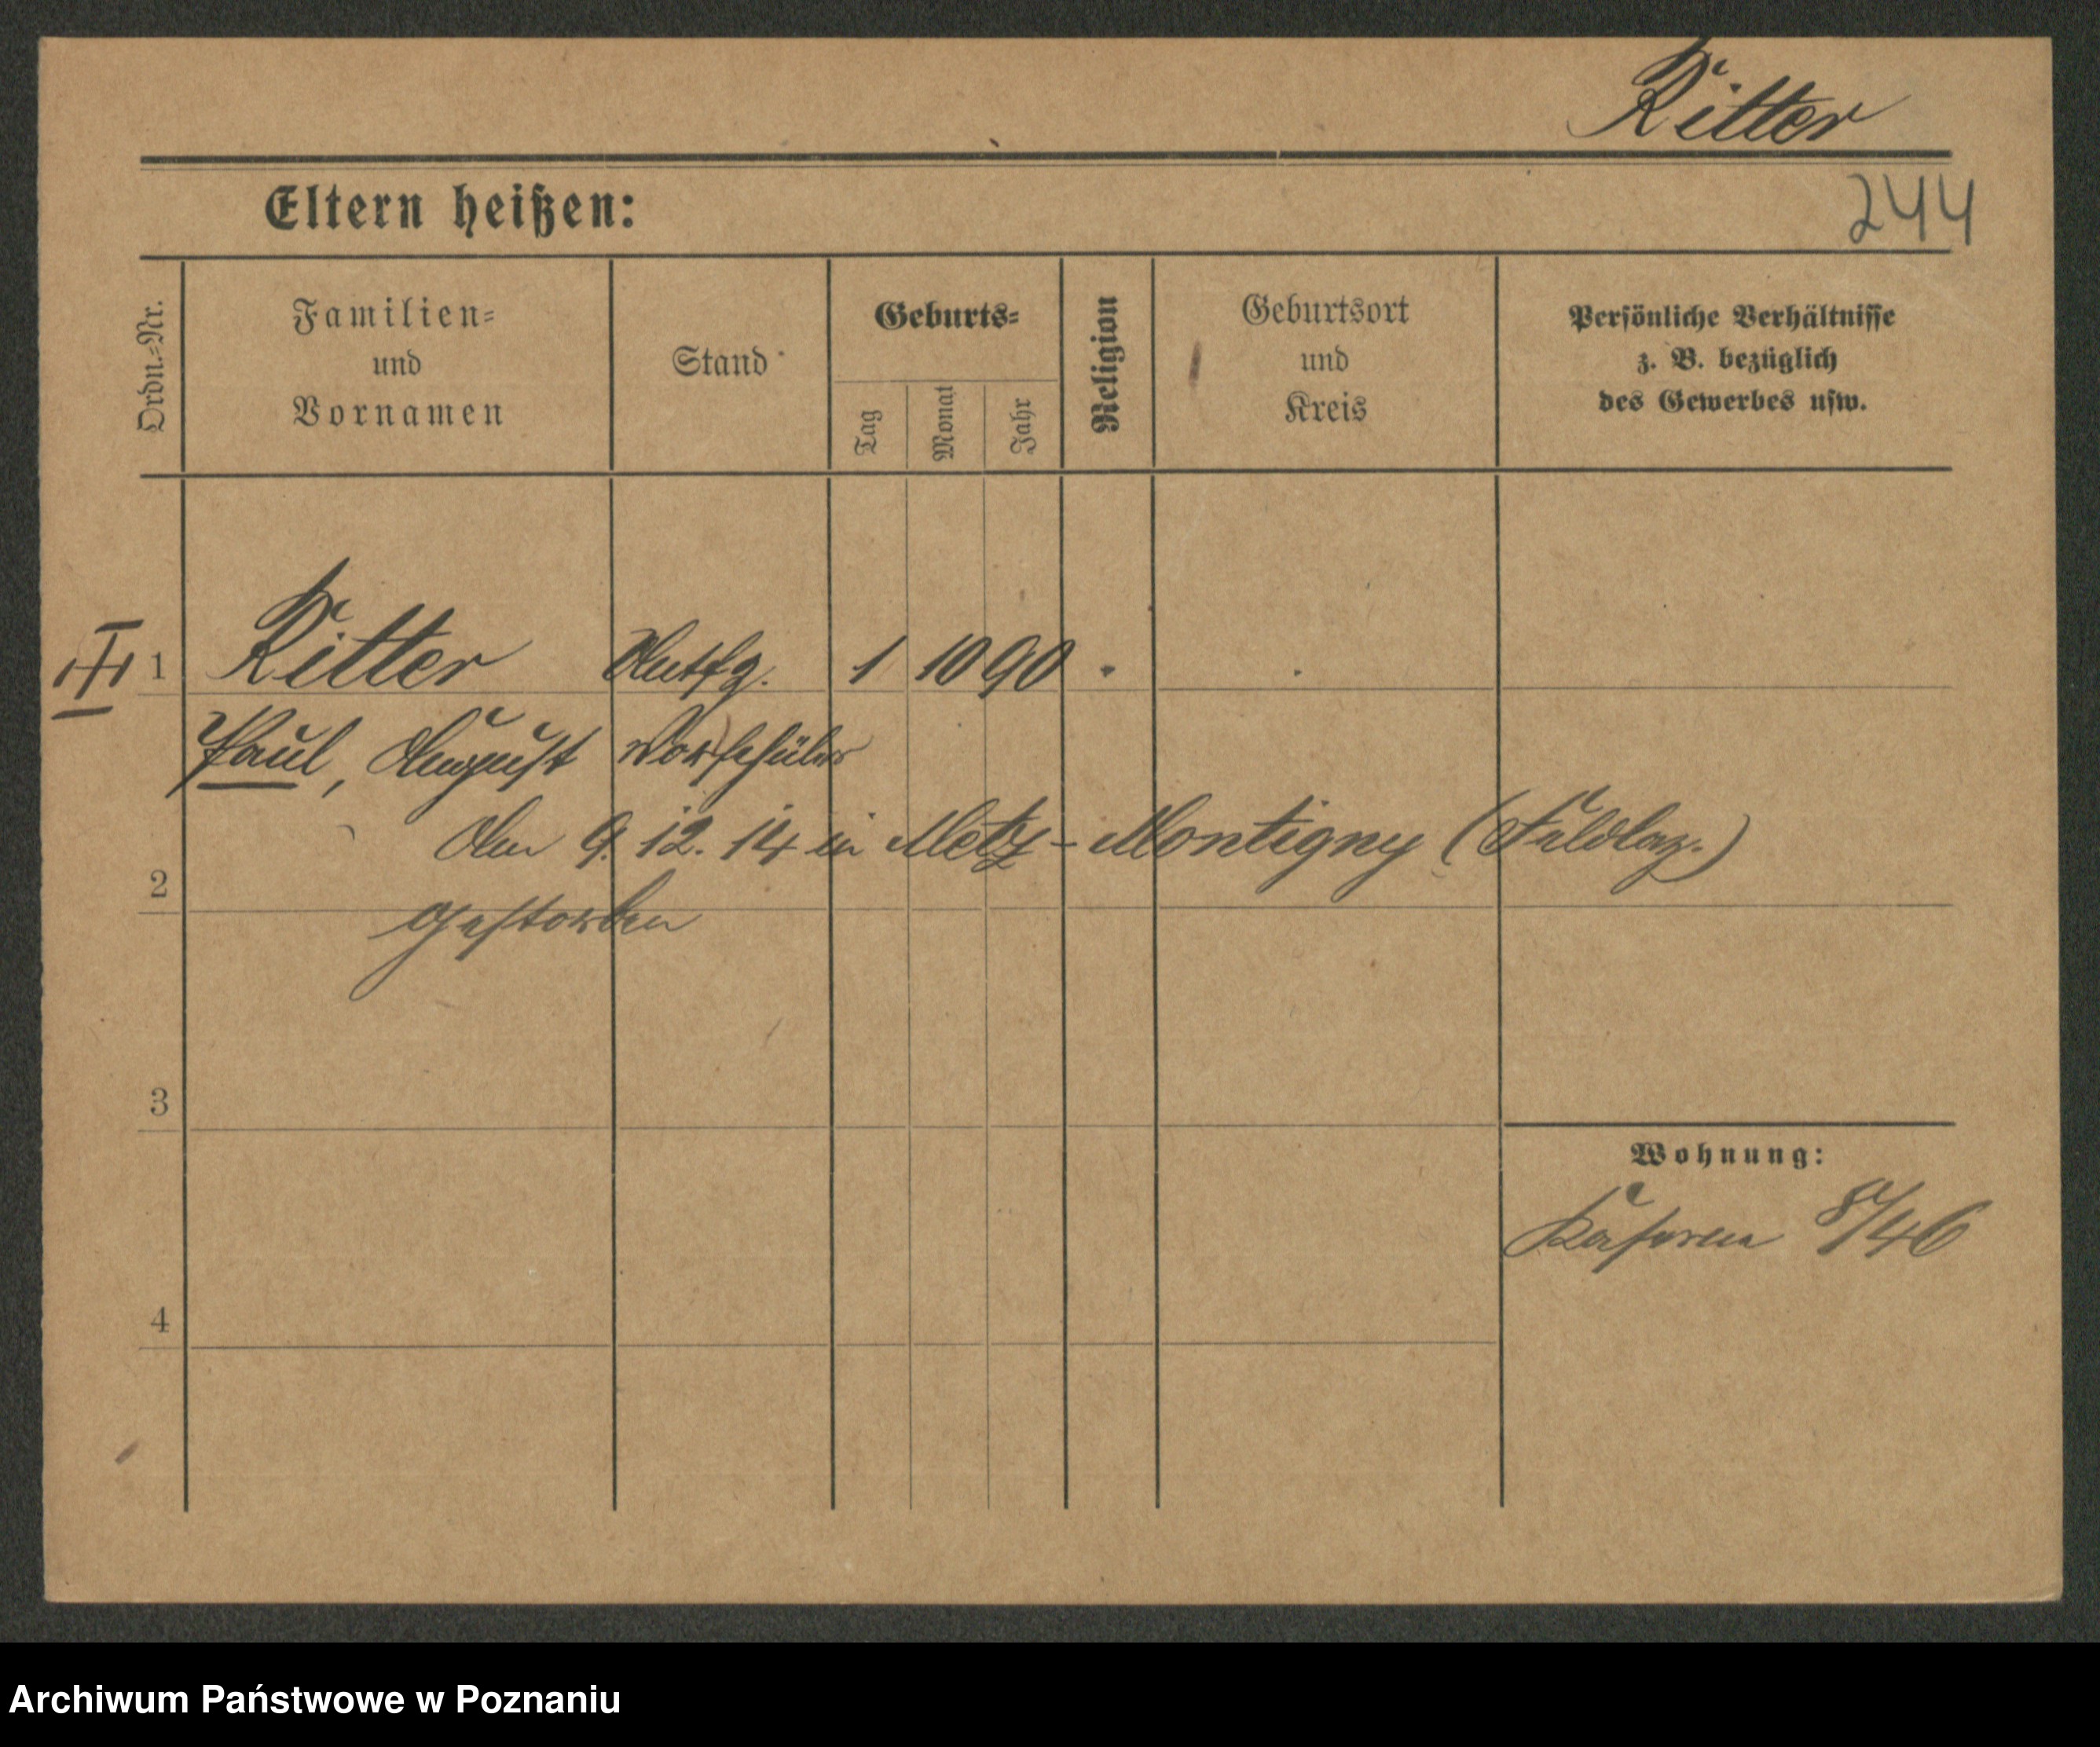 Ritter
Eltern heißen:
244
Ordn.=Nr.
Familien=
und
Vornamen
Stand
Geburts=
Tag
Monat
Jahr
Religion
Geburtsort
und
Kreis
Persönliche Verhältnisse
z. B. bezüglich
des Gewerbes usw.
III 1 Ritter 1 10 90
Paul, August
Am 9. 12. 14 in Metz-Montigny (Feldlaz.)
2
gestorben
3
Wohnung:
Kaserne 8/46
4
Archiwum Państwowe w Poznaniu